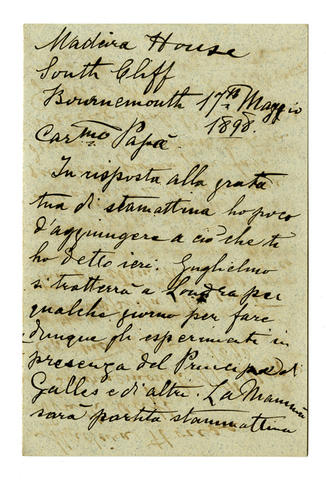 Madeira House
South Cliff
Bournemouth 17th Maggio
1898.
Carmo Papà.
In risposta alla grata
tua di stamattina ho poco
d'aggiungere a ciò che ti
ho detto ieri. Guglielmo
si tratterrà a Londra per
qualche giorno per fare
dunque gli esperimenti in
presenza del Principe di
Galles e di altri. La Mamma
sarà partita stamattina